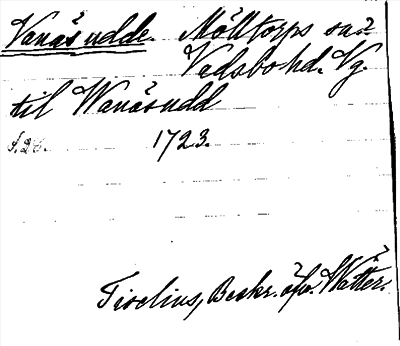 Vanäs udde. Mölltorps sn.
Vadsbo hd. Vg.
til Wanäsudd
s. 26. 1723.
Tiselius, Beskr. öfv. Wätter.